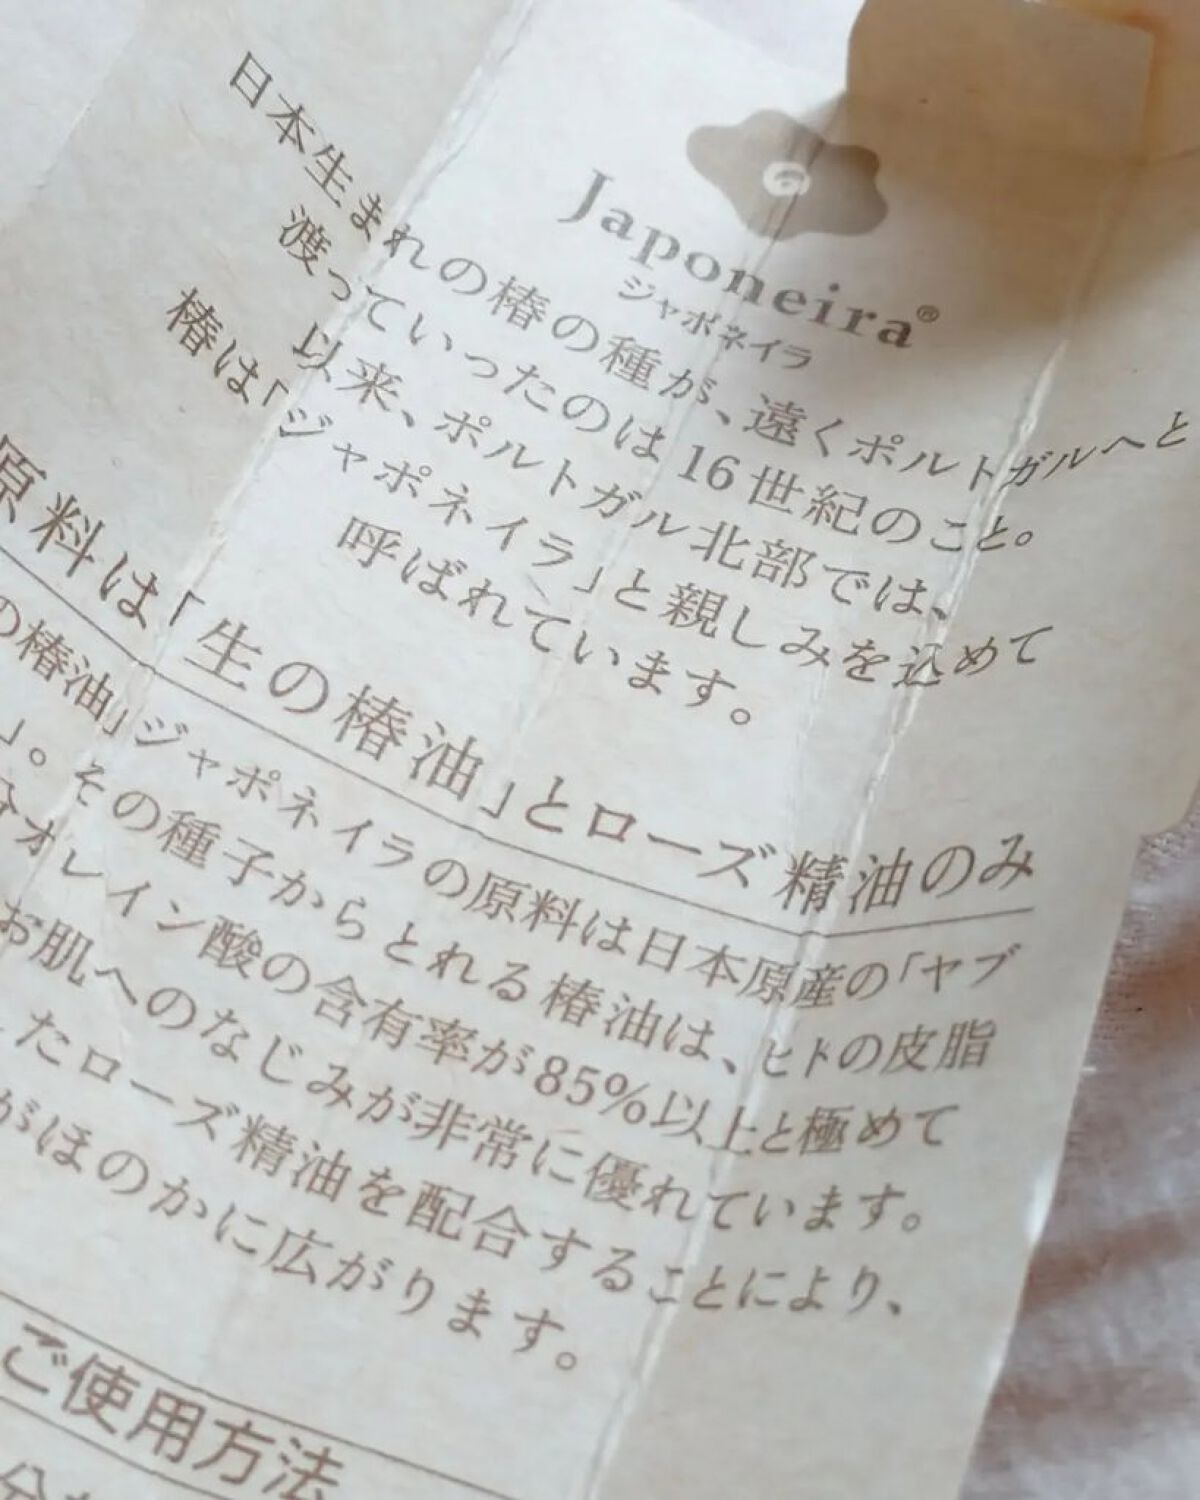 Japoneira®
ジャポネイラ
日本生まれの椿の種が、遠くポルトガルへと
渡っていったのは16世紀のこと。
以来、ポルトガル北部では、
椿は「ジャポネイラ」と親しみを込めて
呼ばれています。
原料は「生の椿油」とローズ精油のみ
の椿油」ジャポネイラの原料は日本原産の「ヤブ
」。その種子からとれる椿油は、ヒトの皮脂
分オレイン酸の含有率が85%以上と極めて
お肌へのなじみが非常に優れています。
したローズ精油を配合することにより、
がほのかに広がります。
ご使用方法